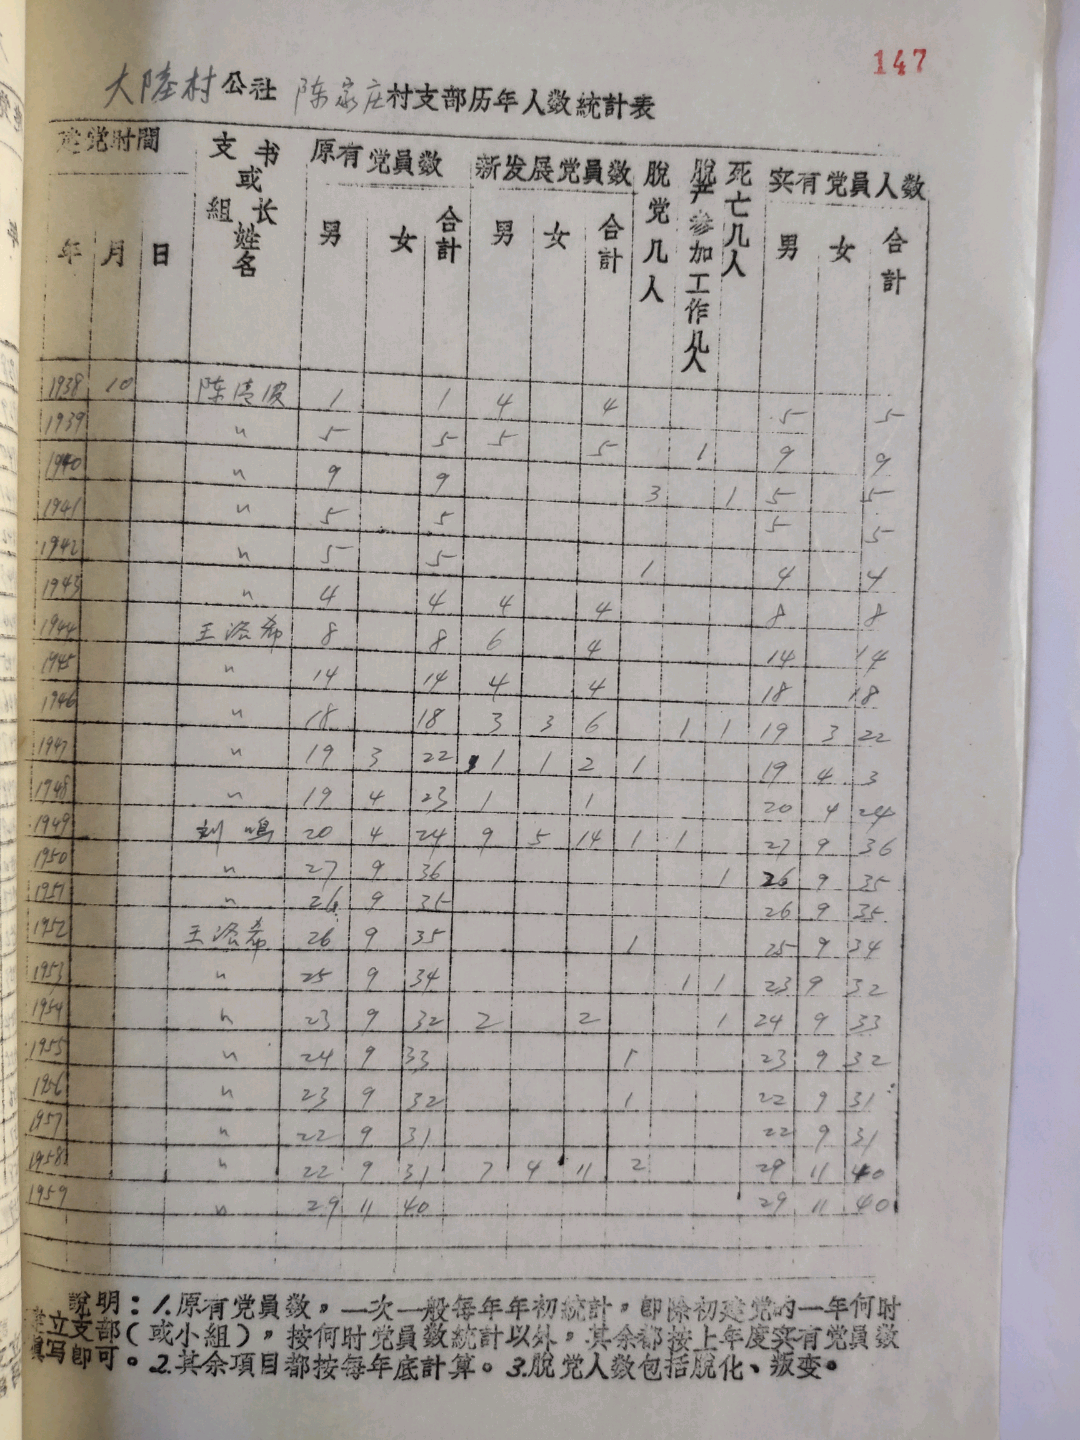 147
大陸村公社 陈家庄村支部历年人数統計表
建党时間 支书或組长姓名 原有党員数 新发展党員数 脫党几人 脫产参加工作几人 死亡几人 实有党員人数
年 月 日 男 女 合計 男 女 合計 男 女 合計
1938 10 陈清波 1 1 4 4 5 5
1939 〃 5 5 5 5 1 9 9
1940 〃 9 9 3 1 5 5
1941 〃 5 5 5 5
1942 〃 5 5 1 4 4
1943 〃 4 4 4 4 8 8
1944 王洛希 8 8 6 4 14 14
1945 〃 14 14 4 4 18 18
1946 〃 18 18 3 3 6 1 1 19 3 22
1947 〃 19 3 22 1 1 2 1 19 4 3
1948 〃 19 4 23 1 1 20 4 24
1949 刘鳴 20 4 24 9 5 14 1 1 27 9 36
1950 〃 27 9 36 1 26 9 35
1951 〃 26 9 35 26 9 35
1952 王洛希 26 9 35 1 25 9 34
1953 〃 25 9 34 1 1 23 9 32
1954 〃 23 9 32 2 2 1 24 9 33
1955 〃 24 9 33 1 23 9 32
1956 〃 23 9 32 1 22 9 31
1957 〃 22 9 31 22 9 31
1958 〃 22 9 31 7 4 11 2 29 11 40
1959 〃 29 11 40 29 11 40
說明：1.原有党員数，一次一般每年年初統計，即除初建党的一年何时
建立支部（或小組），按何时党員数統計以外，其余都按上年度实有党員数
填写即可。2.其余項目都按每年底計算。3.脫党人数包括脫化、叛变。